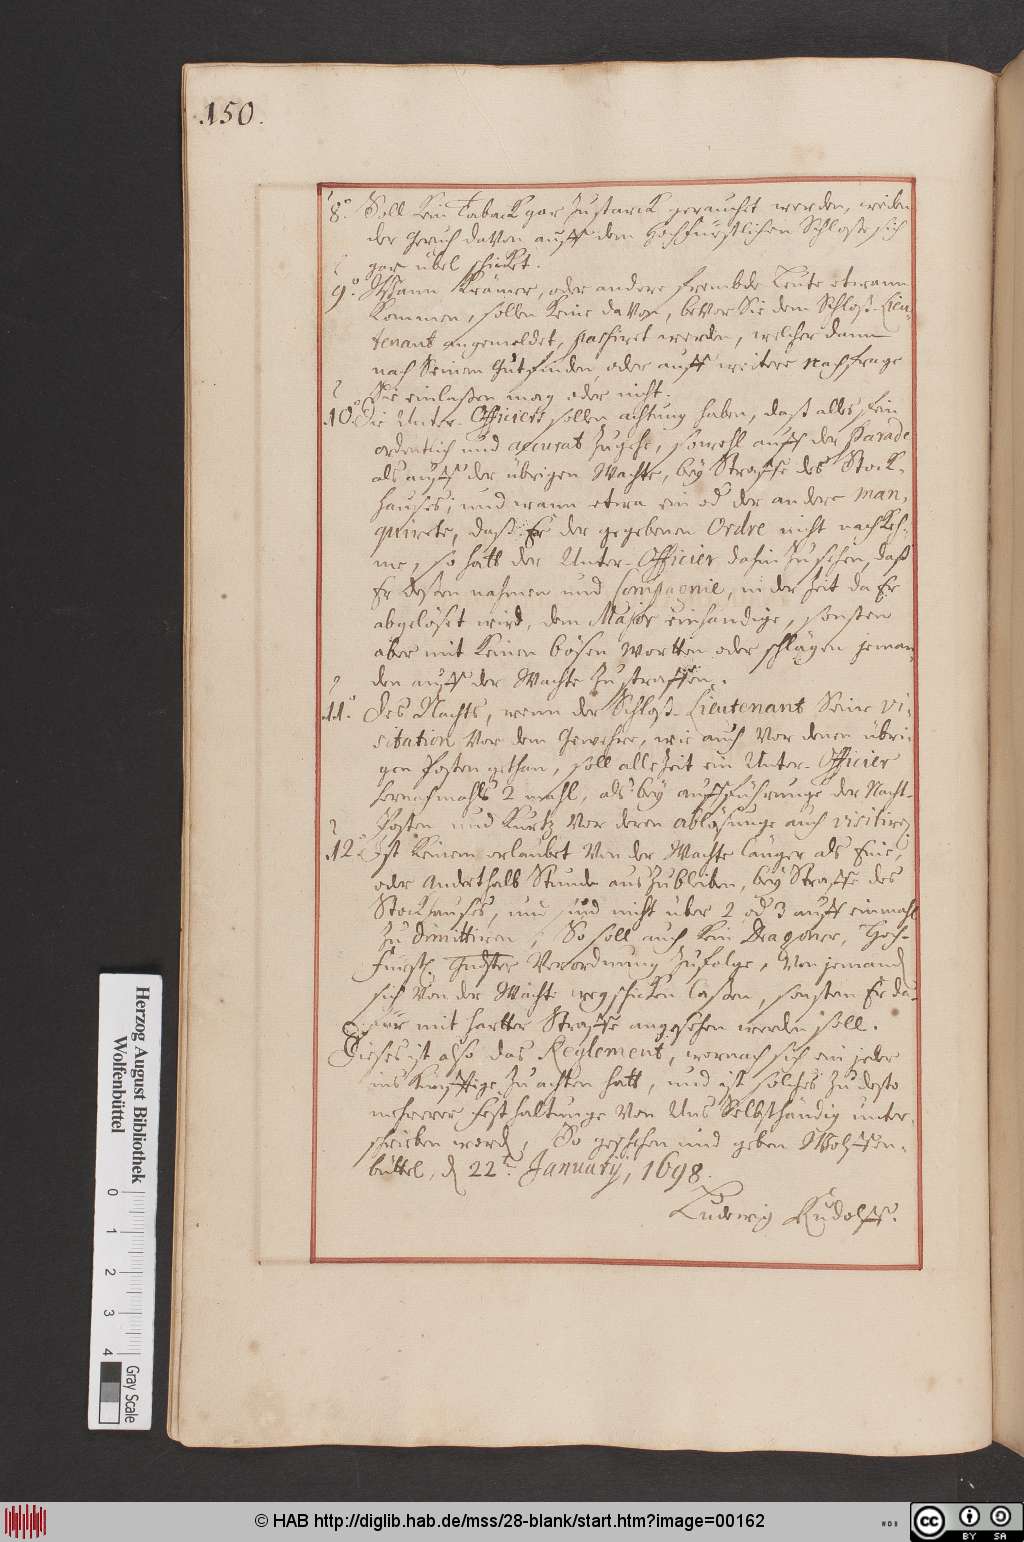 150.
8.° Soll kein Taback gar zu starck gerauchet werden, weilen
der Geruch davon auff dem Hochfürstlichen Schloße sich
gar übel schicket.
9.° Wann Krämer, oder andere frembde Leute etwann
kommen, sollen keine davon, bevor Sie dem Schloß-Lieu-
tenant angemeldet, passiret werden, welcher dann
nach Seinem Gutfinden, oder auff weitere nachfrage
Sie einlaßen mag oder nicht.
10.° Die Unter-Officiers sollen achtung haben, daß alles fein
ordentlich und accurat zugehe, sowohl auff der Parade
als auff der übrigen Wachte, bey Straffe des Stock-
hauses, und wann etwa ein od der andere man-
quirete, daß Er der gegebenen Ordre nicht nachkeh-
me, so hatt der Unter-Officier dahin zu sehen, daß
Er deßen nahmen und Compagnie, in der Zeit da Er
abgelöset wird, dem Major einhändige, sonsten
aber mit keinen bösen Wortten oder schlägen jeman-
den auff der Wachte zu straffen.
11.° Des Nachts, wenn der Schloß-Lieutenant Seine vi-
sitation vor dem Gewehre, wie auch vor denen übri-
gen Posten gethan, soll alle Zeit ein Unter-Officier
hernachmahls 2 mahl, als bey auffführunge der Nacht-
Posten und kurtz vor deren ablösunge auch visitiren.
12.° Ist keinem erlaubet von der Wachte länger als Eine,
oder Anderthalb Stunde auszubleiben, bey Straffe des
Stockhauses, und sind nicht über 2 od 3 auff einmahl
zu dimittiren, So soll auch kein Dragoner, Hoch-
Fürstl. Gndster Verordnung zufolge, von jemand
sich von der Wachte wegschicken laßen, sonsten Er da-
für mit hartter Straffe angesehen werden soll.
Dieses ist also das Reglement, wornach sich ein jeder
ins künfftige zu achten hatt, und ist solches zu desto
mehrerer festhaltunge von Uns Selbsthändig unter-
schrieben word, So geschehen und geben Wolffen-
büttel, d 22t. January, 1698.
Ludewig Rudolff.
Herzog August Bibliothek
Wolfenbüttel
0 1 2 3 4
Gray Scale
© HAB http://diglib.hab.de/mss/28-blank/start.htm?image=00162
WDB
cc BY SA